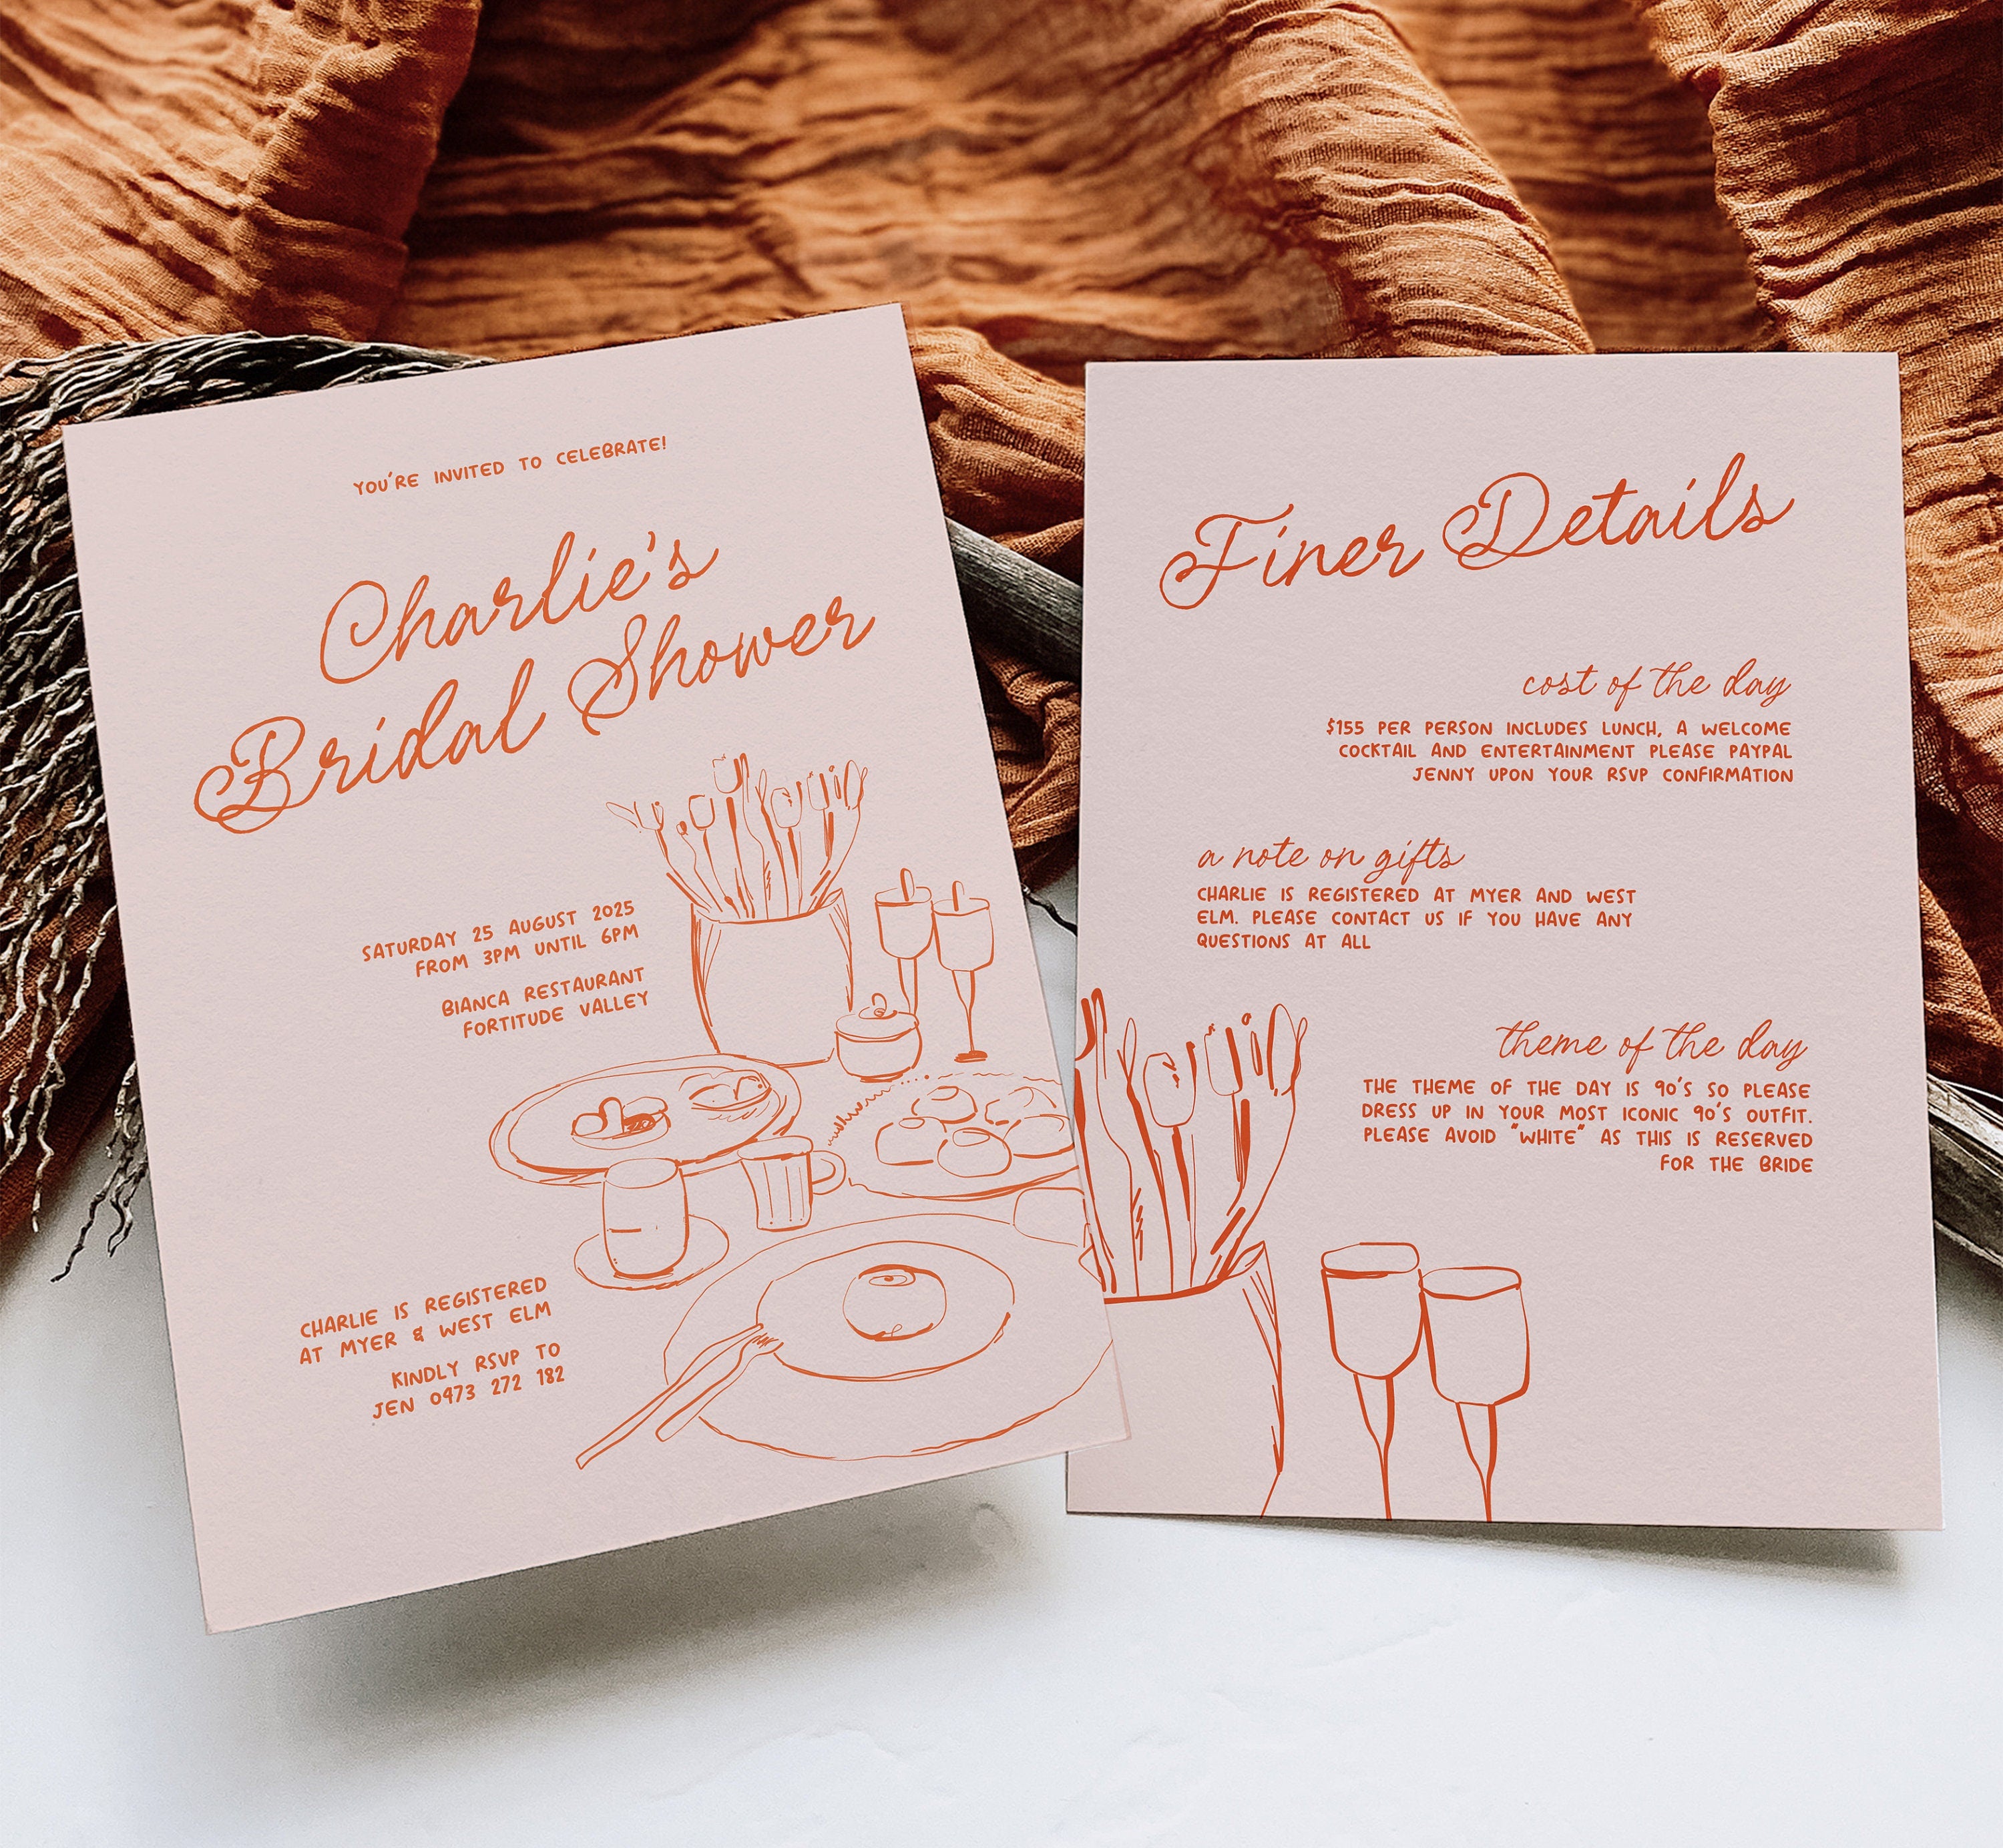 YOU'RE INVITED TO CELEBRATE!
Charlie's
Bridal Shower
SATURDAY 25 AUGUST 2025
FROM 3PM UNTIL 6PM
BIANCA RESTAURANT
FORTITUDE VALLEY
CHARLIE IS REGISTERED
AT MYER & WEST ELM
KINDLY RSVP TO
JEN 0473 272 182
Finer Details
cost of the day
$155 PER PERSON INCLUDES LUNCH, A WELCOME
COCKTAIL AND ENTERTAINMENT PLEASE PAYPAL
JENNY UPON YOUR RSVP CONFIRMATION
a note on gifts
CHARLIE IS REGISTERED AT MYER AND WEST
ELM. PLEASE CONTACT US IF YOU HAVE ANY
QUESTIONS AT ALL
theme of the day
THE THEME OF THE DAY IS 90'S SO PLEASE
DRESS UP IN YOUR MOST ICONIC 90'S OUTFIT.
PLEASE AVOID "WHITE" AS THIS IS RESERVED
FOR THE BRIDE